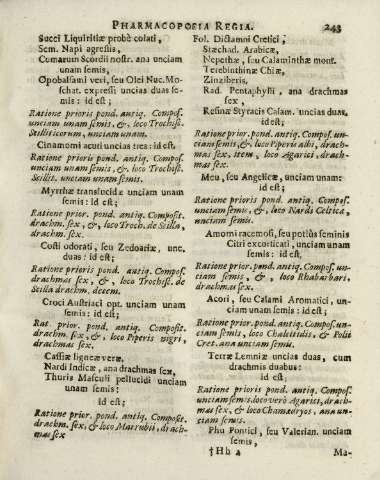 PHARMACOPOEIA REGIA. 243
Succi Liquiritiæ probè colati,
Sem. Napi agrestis,
Comarum Scordii nostr. ana unciam
unam semis,
Opobalsami veri, seu Olei Nuc. Mo-
schat. expressi uncias duas se-
mis: id est;
Ratione prior. pond. antiq. Compos.
unciam unam semis, &, loco Trochisc.
Scilliticorum, unciam unam.
Cinamomi acuti uncias tres: id est;
Ratione prioris pond. antiq. Compos.
unciam unam semis, &, loco Trochisc.
Scillit. unciam unam semis.
Myrrhæ translucidæ unciam unam
semis: id est;
Ratione prior. pond. antiq. Composit.
drachm. sex, &, loco Troch. de Scilla,
drachm. sex.
Costi odorati, seu Zedoariæ, unc.
duas: id est;
Ratione prioris pond. antiq. Compos.
drachmas sex, &, loco Trochisc. de
Scilla drachm. decem.
Croci Austriaci opt. unciam unam
semis: id est;
Rat. prior. pond. antiq. Composit.
drachm. sex, &, loco Piperis nigri,
drachmas sex.
Cassiæ ligneæ veræ,
Nardi Indicæ, ana drachmas sex,
Thuris Masculi pellucidi unciam
unam semis:
id est;
Ratione prior. pond. antiq. Composit.
drachm. sex, & loco Marrubii, drach-
mas sex
Fol. Dictamni Cretici,
Stæchad. Arabicæ,
Nepethæ, seu Calaminthæ mont.
Terebinthinæ Chiæ,
Zinziberis,
Rad. Pentaphylli, ana drachmas
sex,
Resinæ Styracis Calam. uncias duas,
id est;
Ratione prior. pond. antiq. Compos. un-
ciam semis, &, loco Piperis albi, drach-
mas sex, item, loco Agarici, drach-
mas sex.
Meu, seu Angelicæ, unciam unam:
id est;
Ratione prioris pond. antiq. Compos.
unciam semis, &, loco Nardi Celticæ,
unciam semis.
Amomi racemosi, seu potiùs seminis
Citri excorticati, unciam unam
semis: id est;
Ratione prior. pond. antiq. Compos. un-
ciam semis, &, loco Rhabarbari,
drachmas sex.
Acori, seu Calami Aromatici, un-
ciam unam semis: id est;
Ratione prior. pond. antiq. Compos. un-
ciam semis, loco Chalcitidis, & Polii
Cret. ana unciam semis.
Terræ Lemniæ uncias duas, cum
drachmis duabus:
id est;
Ratione prioris pond. antiq. Compos.
unciam semis, loco verò Agarici, drach-
mas sex, & loco Chamædryos, ana un-
ciam semis.
Phu Pontici, seu Valerian. unciam
semis,
†Hh 2 Ma-